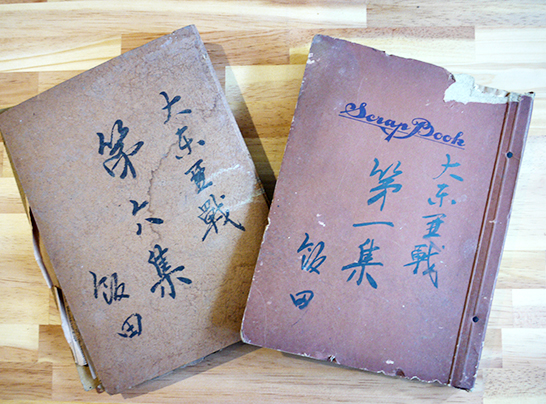 大东亜戦
第六集
飯田
Scrap Book
大东亜戦
第一集
飯田